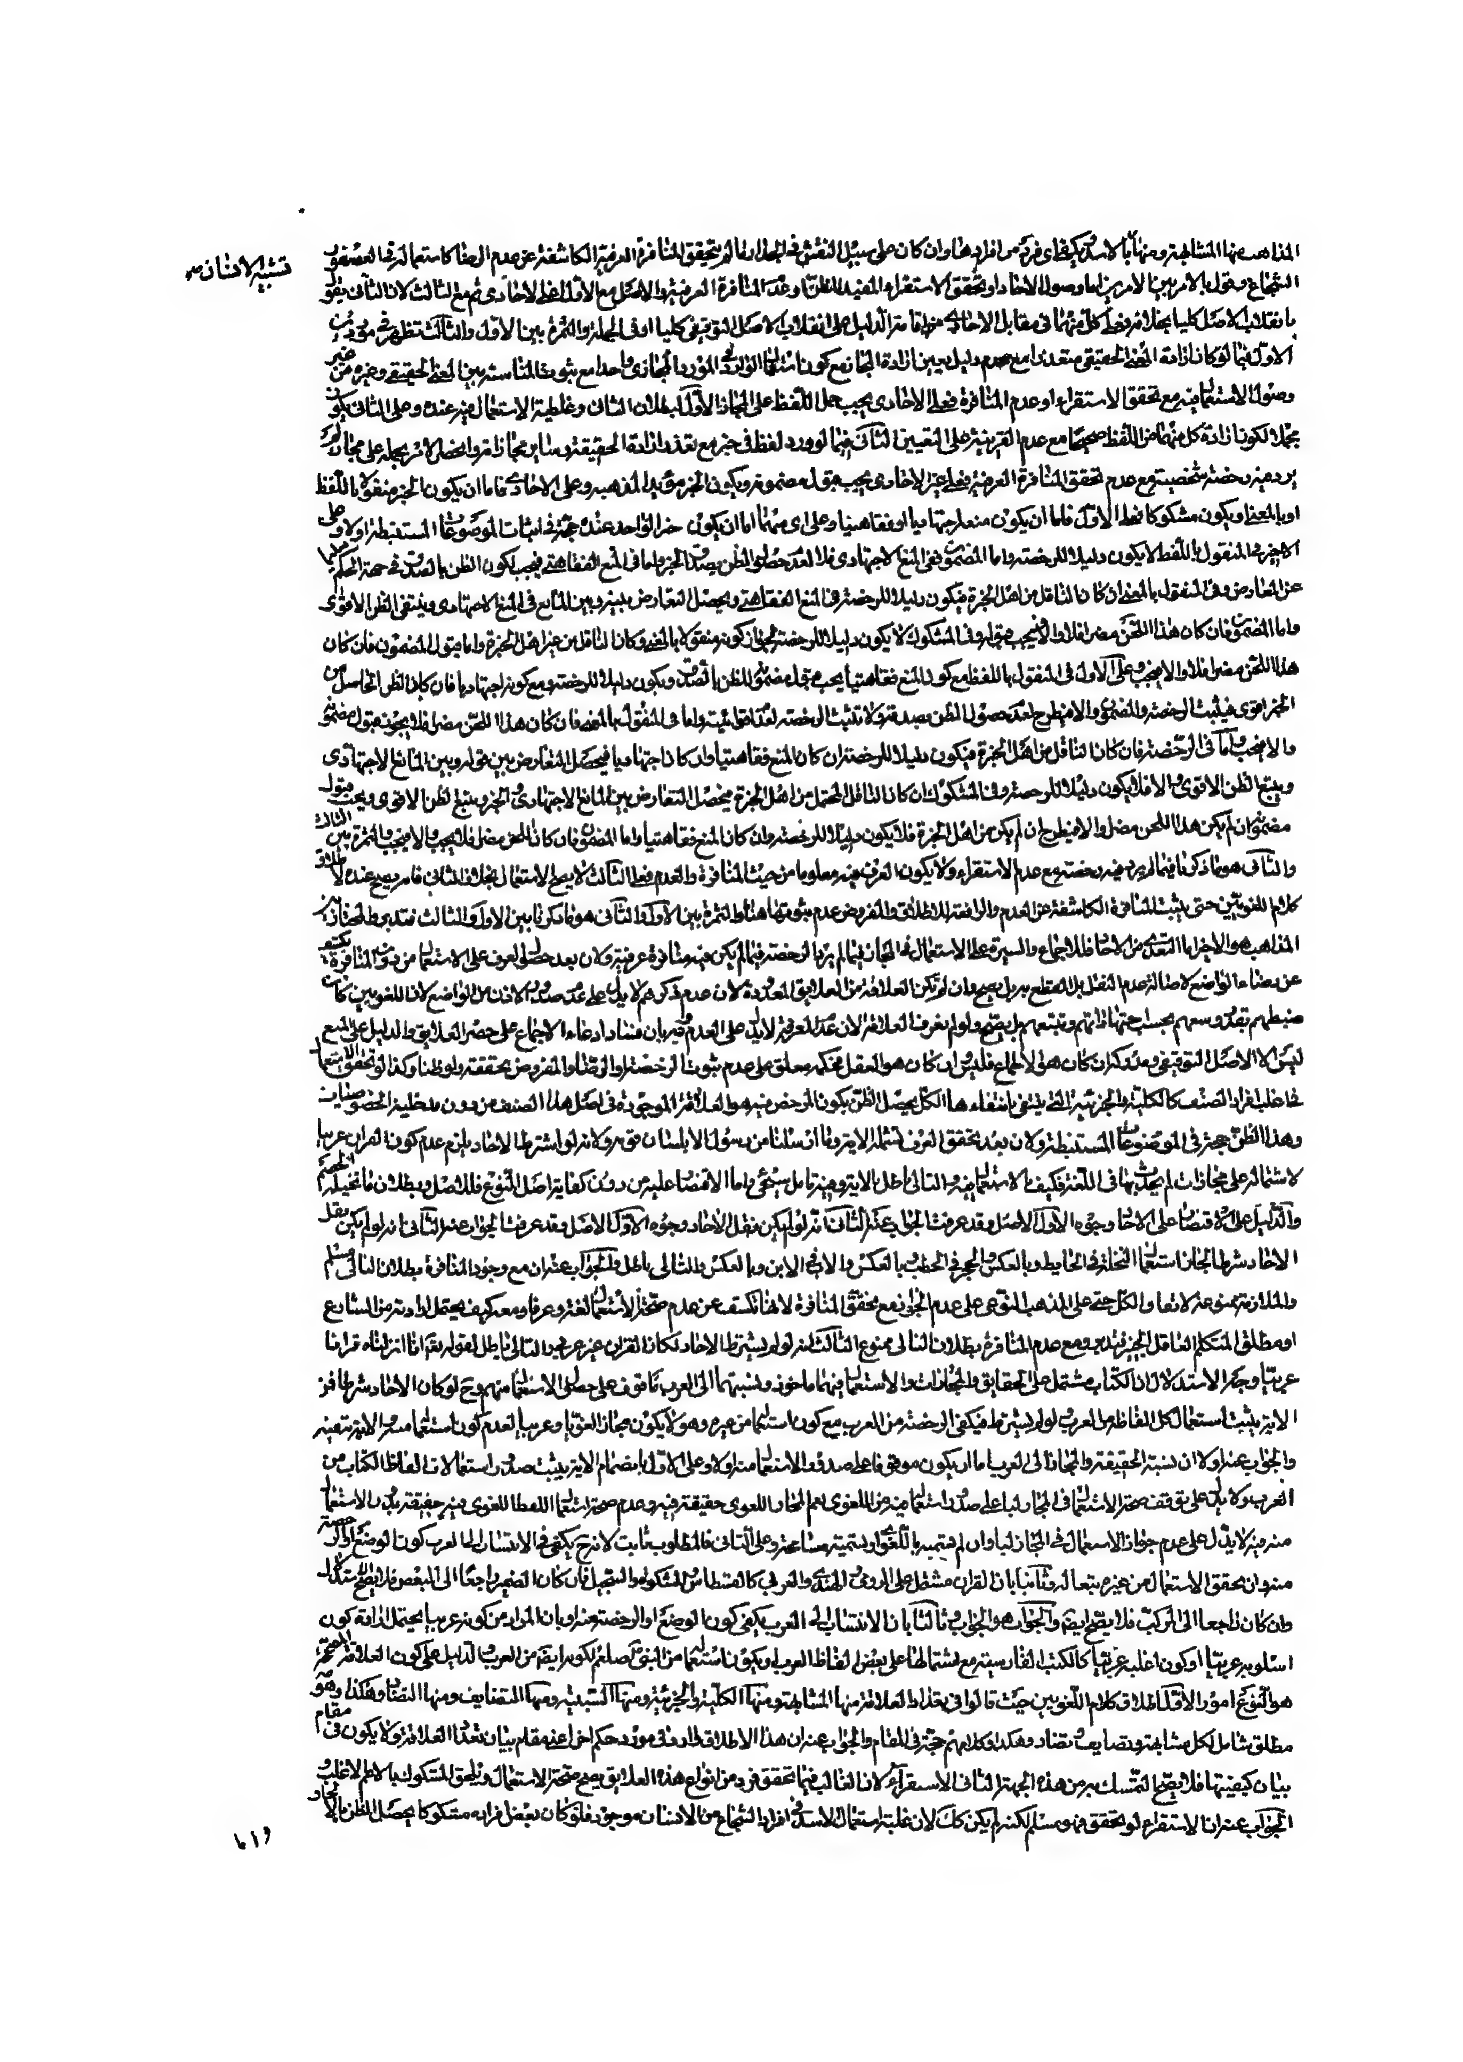 تشبيه الانسان صح
المذاهب منها المشابهة ومنها بالاسد يكفى اى فرد من افرادها وان كان على سبيل النقش فى الجدار ما لم يتحقق المنافرة العرفية الكاشفة عن عدم الرضا كاستعماله فى العصفور
الشجاع ونقول بالامر بين الامرين اما وصول الاحاد او تحقق الاستقراء المفيد للظن او عدم المنافرة العرفية والاصل مع الاول فعلى الاحادى ثم مع الثالث لان الثانى يقول
بانقلاب الاصل كليا بخلافه فعلى كل منهما فى مقابل الاحادى من اقامة الدليل على انقلاب الاصل التوقيفى كليا او فى الجملة والثمرة بين الاول والثالث تظهر فى موضعين
الاول فيما لو كان ارادة المعنى الحقيقى متعذرا مع عدم دليل يعين ارادة المجاز مع كون استعمال الوارد فى المورد المجازى واحدا مع ثبوت المناسبة بين المعنى الحقيقى وغيره من غير
وصول الاستعمال فيه مع تحقق الاستقراء او عدم المنافرة فعلى الاحادى يجب حمل اللفظ على المجاز الاول لبطلان الثانى وغلطية الاستعمال فيه عنده وعلى الثانى يكون
مجملا لكون ارادة كل منهما من اللفظ صحيحا مع عدم القرينة على التعيين الثانى فيما لو ورد لفظ فى خبر مع تعذر ارادة الحقيقة وساير مجازاته وانحصار الامر بحمله على مجاز لم
يرد فيه رخصة شخصية مع عدم تحقق المنافرة العرفية فعلى غير الاحادى يجب قبول مضمونه ويكون الخبر مؤيدا لمذهبه وعلى الاحادى فاما ان يكون الخبر منقولا باللفظ
او بالمعنى او يكون مشكوكا فعلى الاول فاما ان يكون منعه اجتهاديا او فقاهتيا وعلى اى منهما اما ان يكون خبر الواحد عنده حجة فى اثبات الموضوعات المستنبطة اولا وعلى
الاخير فى المنقول باللفظ لا يكون دليلا للرخصة واما المضمون ففى المنع الاجتهادى فلا لعدم حصول الظن بصدق الخبر واما فى المنع الفقاهتى فيجب لكون الظن بالصدق فى صحة الحكم سليما
عن المعارض وفى المنقول بالمعنى ان كان الناقل من اهل الخبرة فيكون دليلا للرخصة فى المنع الفقاهتى ويحصل التعارض بينه وبين المانع فى المنع الاجتهادى ويتبع الظن الاقوى
واما المضمون فان كان هذا اللحن مضرا فلا والا فيجب قبوله وفى المشكوك لا يكون دليلا للرخصة لجواز كونه منقولا بالمعنى وكان الناقل من غير اهل الخبرة واما قبول المضمون فان كان
هذا اللحن مضرا فلا والا فيجب وعلى الاول فى المنقول باللفظ مع كون المنع فقاهتيا يجب قبول مضمونه للظن بالصدق ويكون دليلا للرخصة ومع كونه اجتهاديا فان كان الظن الحاصل من
الخبر اقوى فيثبت الرخصة والمضمون والا فيطرح لعدم حصول الظن بصدقه ولا تثبت الرخصة لعدم اقوائيته واما فى المنقول بالمعنى فان كان هذا اللحن مضرا فلا يجوز قبول مضمونه
والا فيجب واما فى الرخصة فان كان الناقل من اهل الخبرة فيكون دليلا للرخصة ان كان المنع فقاهتيا وان كان اجتهاديا فيحصل التعارض بين قوله وبين المانع الاجتهادى
ويتبع الظن الاقوى والا فلا يكون دليلا للرخصة وفى المشكوك ان كان الناقل المحتمل من اهل الخبرة فيحصل التعارض بين المانع الاجتهادى والخبر ويتبع الظن الاقوى ويجب قبول
مضمونه ان لم يكن هذا اللحن مضرا والا فيطرح ان لم يكن من اهل الخبرة فلا يكون دليلا للرخصة وان كان المنع فقاهتيا واما المضمون فان كان اللحن مضرا فلا يجب والا فيجب والثمرة بين الثالث
والثانى هو ما ذكرنا فيما لم يرد فيه رخصة مع عدم الاستقراء ولا يكون العرف فيه معلوما من حيث المنافرة والعدم فعلى الثالث لا يصح الاستعمال بخلاف الثانى فانه يصح عنده لاطلاق
كلام اللغويين حتى يثبت المنافرة الكاشفة عن العدم والرافعة للاطلاق والمفروض عدم ثبوتها هنا والثمرة بين الاول والثانى هو ما ذكرنا بين الاول والثالث فتدبر والمختار من
المذاهب هو الاخير اما التعدى من الاحاد فللاجماع والسيرة على الاستعمال فى المجاز فيما لم يرد الرخصة فيما لم يكن فيه منافرة عرفية ولان بعد حصول العرف على الاستعمال من دون المنافرة يكشف
عن رضاء الواضع لاصالة عدم النقل بل المقطع به بل يصح وان لم تكن العلاقة من العلايق المعدودة لان عدم ذكرهم لا يدل على عدم صدور الاذن من الواضع لان اللغويين كان
ضبطهم بقدر وسعهم بحسب اجتهاداتهم وتتبعهم بل يصح ولو لم يعرف العلاقة لان عدم المعرفة لا يدل على العدم وخبر بان فساد ادعاء الاجماع على حصر العلايق والدليل على المنع
ليس الا الاصل التوقيفى ومدركه ان كان هو الاجماع فليس وان كان هو العقل فحكمه معلق على عدم ثبوت الرخصة او الرضا والمفروض تحققه ولو ظنا وكذا لو تحقق الاستعمال
فى اغلب افراد الصنف كالكلية والجزئية التى ينتفى بانتفاءها الكل يحصل الظن بكون المرخص فيه هو العلاقة الموجودة فى اصل هذا الصنف من دون مدخلية الخصوصيات
وهذا الظن حجة فى الموضوعات المستنبطة ولان بعد تحقق العرف تشمله الاية وما ارسلنا من رسول الا بلسان قومه ولانه لو اشترط الاحاد يلزم عدم كون القران عربيا
لاشتماله على مجازات لم يعهد بها فى اللغة فكيف بالاستعمال فيه والتالى باطل بالاية وفيه تامل سيجىء واما الاقتصار عليه من دون كفاية اصل النوع فللاصل وبطلان ما تخيله الخصم
والدليل على الاقتصار على الاحاد وجوه الاول الاصل وقد عرفت الجواب عنه الثانى انه لو لم يكن نقل الاحاد وجوه الاول الاصل وقد عرفت الجواب عنه الثانى انه لو لم يكن نقل
الاحاد شرطا لجاز استعمال النخلة فى الحايط وبالعكس والحجر فى الحطب وبالعكس والاب فى الابن وبالعكس والتالى باطل والجواب عنه ان مع وجود المنافرة بطلان التالى مسلم
والملازمة ممنوعة لانها والكل حتى على المذهب النوعى على عدم الجواز مع تحقق المنافرة لانها تكشف عن عدم صحة الاستعمال لغة وعرفا ومعه كيف يحتمل ارادته من الشارع
او مطلق المتكلم العاقل الخبير فتدبر ومع عدم المنافرة بطلان التالى ممنوع الثالث انه لو لم يشترط الاحاد لكان القران غير عربى والتالى باطل لقوله تعالى انا انزلناه قرانا
عربيا وجه الاستدلال ان الكتاب مشتمل على الحقايق والمجازات والاستعمال فيهما ماخوذ ونسبتهما الى العرب ماخوذ على حصول الاستعمال منهم وح لو كان الاحاد شرطا فمن
الاية يثبت استعمال كل الفاظه من العرب لو لم يشترط فيكفى الرخصة من العرب مع كون استعماله من غيرهم وهو لا يكون مجازا لغويا وعربيا لعدم كون استعماله من العرب والاية تعينه
والجواب عنه اولا ان نسبة الحقيقة والمجاز الى العرب اما ان يكون موقوفا على صدور الاستعمال منه اولا وعلى الاول بانضمام الاية يثبت صدور استعمالات الفاظ الكتاب من
العرب ولا يدل على توقف صحة الاستعمال فى المجاز على صدور استعمال فيه من اللغوى نعم المجاز اللغوى حقيقة فيه وعدم صحة استعمال اللفظ اللغوى فيه حقيقة بدون الاستعمال
منه فيه لا يدل على عدم جواز الاستعمال فى المجاز وان لم نسميه باللغوى او تسميته مسامحة وعلى الثانى فالمطلوب ثابت لانه ح يكفى فى الانتساب الى العرب كون الوضع او الرخصة
منه وان تحقق الاستعمال من غيره تبعا له وثانيا بان القران مشتمل على الرومى والهندى والعربى كالقسطاس والمشكوة والسجيل فان كان الضمير راجعا الى البعض فلا يصح الاستدلال
وان كان راجعا الى المركب فلا يصح ايضا والجواب هو الجواب وثالثا بان الانتساب الى العرب يكفى كون الوضع او الرخصة منه او بان المراد من كونه عربيا يحتمل ارادة كون
اسلوبه عربيا او كون اغلبه عربيا كالكتب الفارسية مع اشتمالها على بعض الفاظ العرب او يكون استعمال من النبى صلعم لكونه ايضا من العرب والدليل على كون العلاقة المصححة
هو النوع امور الاول اطلاق كلام اللغويين حيث قالوا فى تعداد العلاقة منها المشابهة ومنها الكلية والجزئية ومنها السببية ومنها التضايف ومنها التضاد وهكذا وهو
مطلق شامل لكل مشابهة وتضايف وتضاد وهكذا وكلامهم حجة فى المقام والجواب عنه ان هذا الاطلاق وارد فى مورد حكم اخر اعنى مقام بيان تعداد العلاقة ولا يكون فى مقام
بيان كيفيتها فلا يصح التمسك به من هذه الجهة الثانى الاستقراء لان الغالب فيما تحقق فرد من انواع هذه العلايق يصح صحة الاستعمال ونلحق المشكوك بالاعم الاغلب و
الجواب عنه ان الاستقراء لو تحقق فهو مسلم لكنه لم يكن كك لان غلبة استعمال الاسد فى افراد الشجاع من الانسان موجود فلو كان بعض افراده مشكوكا يحصل الظن بالجواز
واما